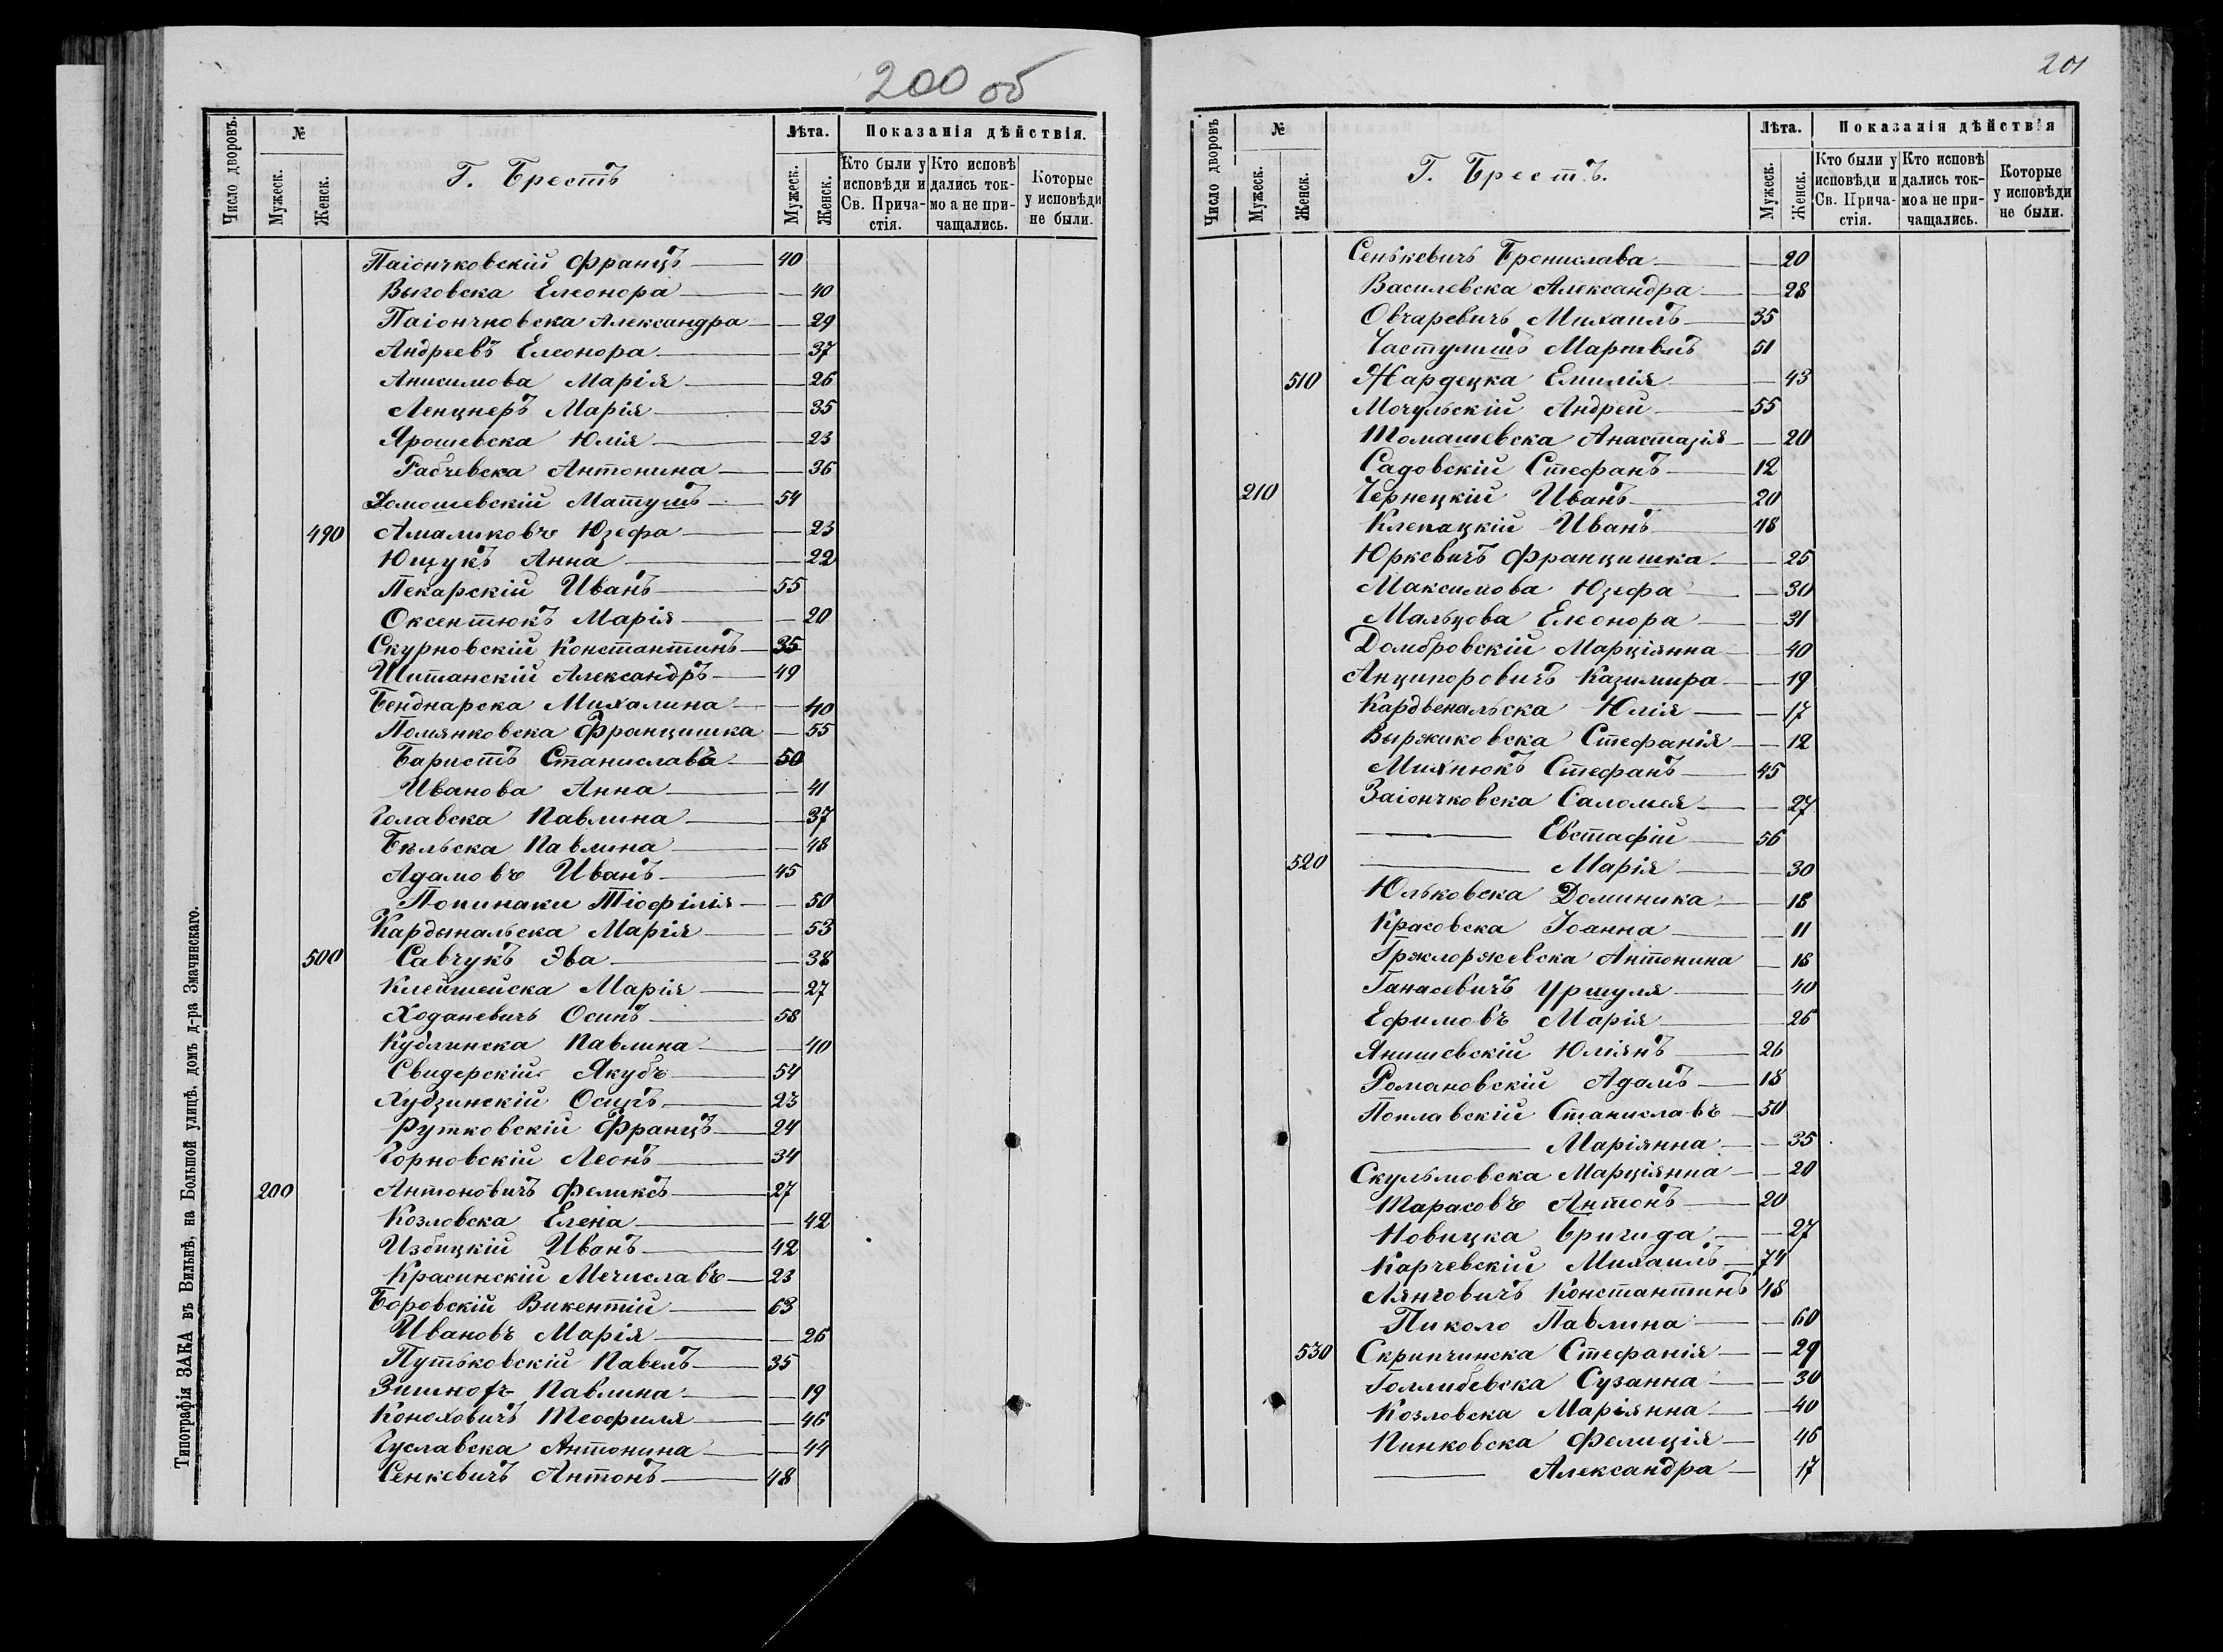 200 об
Число дворовъ.
№
Мужеск.
Женск.
Г. Брестъ
Лѣта.
Мужеск.
Женск.
Показанія дѣйствія.
Кто были у исповѣди и Св. Прича-стія.
Кто исповѣ дались ток-мо а не при-чащались.
Которые у исповѣди не были.
Паіончковскій Францъ — 40
Выговска Елеонора — 40
Паіончковска Александра — 29
Андреевъ Елеонора — 37
Анисимова Марія — 26
Ленцнеръ Марія — 35
Ярошевска Юлія — 23
Рабчевска Антонина — 36
Хомошевскій Матушъ — 54
490 Амаликовъ Юзефа — 23
Ющукъ Анна — 22
Пекарскій Иванъ — 55
Оксентюкъ Марія — 20
Скурновскій Константинъ — 35
Шитанскій Александръ — 49
Бенднарска Михалина — 40
Помянковска Францишка — 55
Баристъ Станиславъ — 50
Иванова Анна — 41
Голавска Павлина — 37
Бѣльска Павлина — 48
Адамовъ Иванъ — 45
Попинаки Тіофілія — 50
Кардынальска Марія — 53
500 Савчукъ Эва — 38
Клейшейска Марія — 27
Ходаневичъ Осипъ — 58
Кублинска Павлина — 40
Свидерскій Якубъ — 54
Лубзинскій Осипъ — 23
Рутковскій Францъ — 24
Горновскій Леонъ — 34
200 Антоновичъ Феликсъ — 27
Козловска Елена — 42
Избицкій Иванъ — 42
Красинскій Мечиславъ — 23
Боровскій Викентій — 63
Ивановъ Марія — 26
Путьковскій Павелъ — 35
Павлина — 19
Коноховичъ Теофиля — 46
Гуславска Антонина — 44
Сенкевичъ Антонъ — 48
Типографія ЗАКА въ Вильнѣ, на Большой улицѣ, домъ д-ра Змачинскаго.
201
Число дворовъ
№
Мужеск.
Женск.
Г. Брестъ.
Лѣта.
Мужеск.
Женск.
Показанія дѣйствія
Кто были у исповѣди и Св. Прича-стія.
Кто исповѣ дались ток-мо а не при-чащались.
Которые у исповѣди не были.
Сенькевичъ Брониславa — 20
Василевска Александра — 28
Овчаревичъ Михаилъ — 35
Частулишъ 51
510 Жардецка Емилія — 43
Мочульскій Андрей — 55
Томашевска Анастазія — 20
Садовскій Стефанъ — 12
210 Чернецкій Иванъ — 20
Клепацкій Иванъ — 48
Юркевичъ Францишка — 25
Максимова Юзефа — 30
Мальцова Елеонора — 31
Домбровскій Марціянна — 40
Анципоровичъ Казимира — 19
Кардвенальска Юлія — 17
Выржиковска Стефанія — 12
Михнюкъ Стефанъ — 45
Заіончковска Саломея — 27
— Евстафій — 56
520 — Марія — 30
Юльковска Доминика — 18
Красовска Іоанна — 11
Гржлоржевска Антонина 18
Ганасевичъ Уршуля — 40
Ефимовъ Марія — 26
Янишевскій Юліянъ — 26
Романовскій Адамъ — 18
Поплавскій Станиславъ — 50
— Маріянна — 35
Скульмовска Марціянна — 20
Тарасовъ Антонъ — 20
Новицка Бригида — 27
Карчевскій Михаилъ — 74
Лянговичъ Константинъ 48
Пиколо Павлина — 60
530 Скрипчинска Стефанія — 29
Голлибевска Сузанна — 30
Козловска Маріянна — 40
Пинковска Фелиція — 46
— Александра — 17